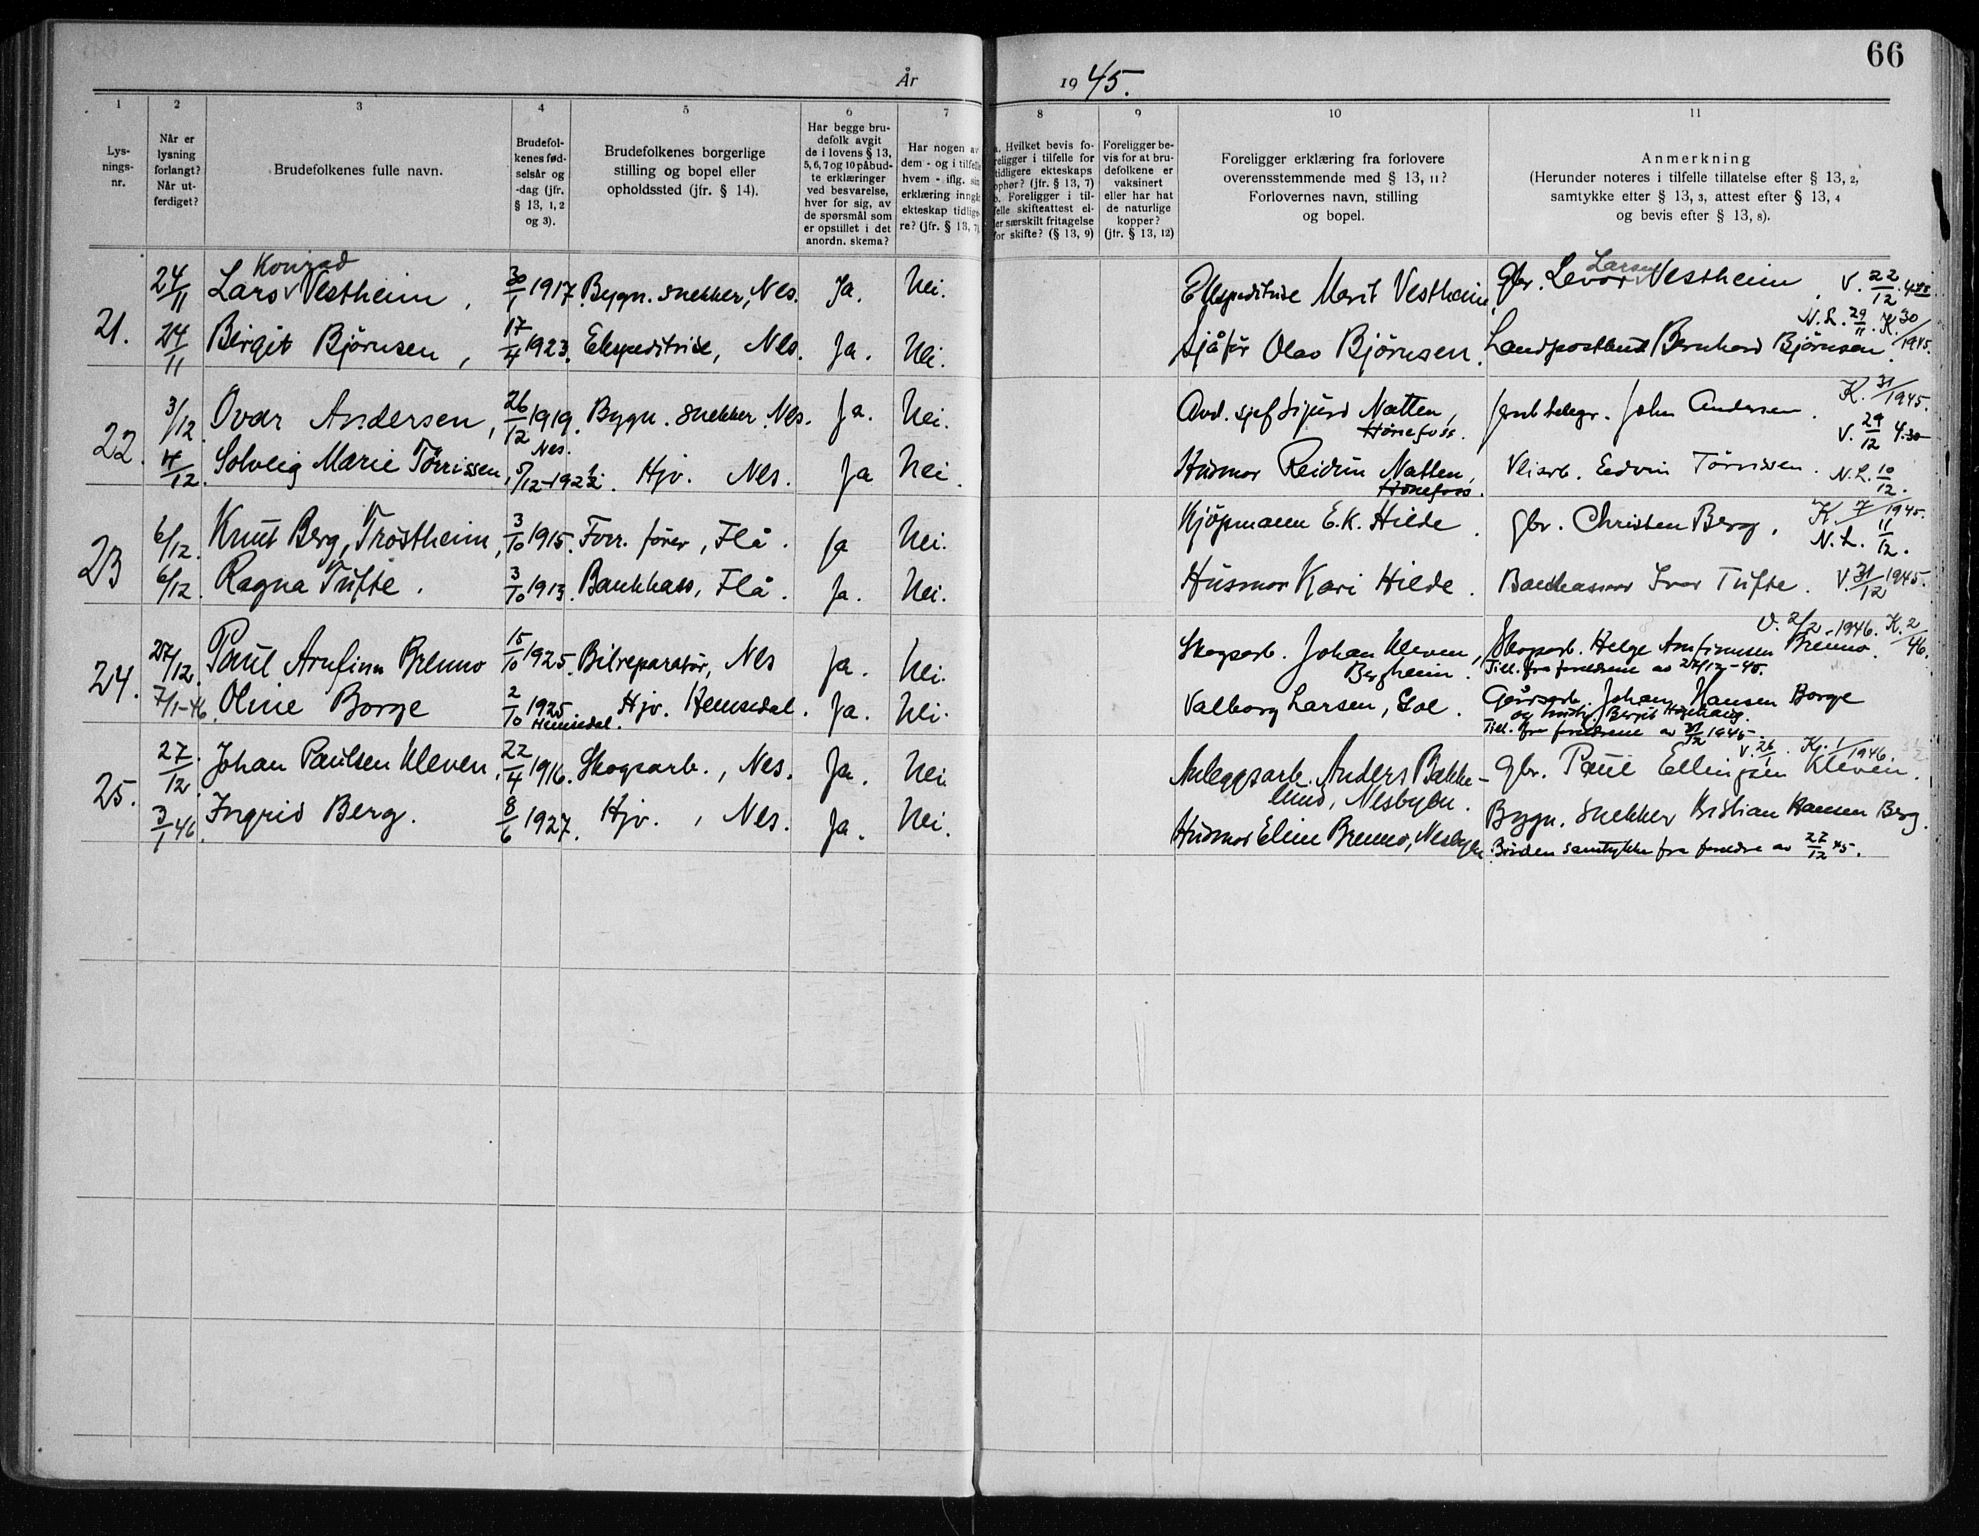 66
År 1945.
1 2 3 4 5 6 7 8 9 10 11
Lys-
nings-
nr.
Når er
lysning
forlangt?
Når ut-
ferdiget?
Brudefolkenes fulle navn.
Brudefol-
kenes fød-
selsår og
-dag (jfr.
§ 13, 1, 2
og 3).
Brudefolkenes borgerlige
stilling og bopel eller
opholdssted (jfr. § 14).
Har begge bru-
defolk avgit
de i lovens § 13,
5, 6, 7 og 10 påbud-
te erklæringer
ved besvarelse,
hver for sig, av
de spørsmål som
er opstillet i det
anordn. skema?
Har nogen av
dem - og i tilfelle
hvem - iflg. sin
erklæring inngå
ekteskap tidlige-
re? (jfr. § 13, 7)
a. Hvilket bevis fo-
religger i tilfelle for
tidligere ekteskaps
ophør? (jfr. § 13, 7)
b. Foreligger i til-
felle skifteattest el-
ler særskilt fritagelse
for skifte? (§ 13, 9)
Foreligger be-
vis for at bru-
defolkene er
vaksinert
eller har hat
de naturlige
kopper?
(jfr. § 13, 12)
Foreligger erklæring fra forlovere
overensstemmende med § 13, 11?
Forlovernes navn, stilling
og bopel.
Anmerkning
(Herunder noteres i tilfelle tillatelse efter § 13, 2,
samtykke efter § 13, 3, attest efter § 13, 4
og bevis efter § 13, 8).
21. 24/11 Lars Konrad Vestheim, 30/1 1917. Bygn. snekker, Nes. Ja. Nei. Ekspeditrise Marit Vestheim, gbr. Levor Larsen Vestheim V. 22/12
24/11 Birgit Björnsen, 17/4 1923. Ekspeditrise, Nes. Ja. Nei. Sjåför Olav Björnsen. Landpostbud Bernhard Björnsen. N.L. 29/11. K. 30/1945.
22. 3/12 Ovar Andersen, 26/12 1919. Nes. Bygn. snekker, Nes. Ja. Nei. Avd. sjef Sigurd Natten, Hönefoss. John Andersen. K. 31/1945. V. 29/12 4.30
4/12. Solveig Marie Törrissen, 5/12-1922. Hjv. Nes. Ja Nei. Husmor Reidun Natten, Hönefoss. Veiarb. Edvin Törrissen. N.L. 10/12.
23 6/12. Knut Berg, Tröstheim, 3/10 1915. Forr. förer, Flå. Ja Nei. Kjöpmann E.K. Hilde. gbr. Christen Berg, K. 7/1945. N.L. 11/12.
6/12. Ragna Tufte. 3/10 1913. Bankkass, Flå. Ja. Nei. Husmor Kari Hilde. Bankkasserer Ivar Tufte. V. 31/12 1945.
24. 27/12. Paul Arnfinn Brenno 15/10 1925. Bilreparatör, Nes Ja. Nei. Skogsarb. Johan Kleven, Bergheim. Skogsarb. Helge Arnfinnsen Brenno. V. 2/2-1946. K. 2/46.
Till. fra foreldrene av 27/12-45.
7/1-46. Oline Borge 2/10 1925. Hemsedal. Hjv. Hemsedal. Ja. Nei. Valborg Larsen, Gol. Gårdsarb. Johan Hansen Borge
Till. fra foreldrene av 31/12 1945.
25. 27/12. Johan Paulsen Kleven, 22/4 1916. Skogsarb., Nes. Ja. Nei. Anleggsarb. Anders Bække-
lund, Nesbyen. gbr. Paul Ellingsen Kleven. V. 26/1. K. 1/1946.
3/1 46. Ingrid Berg. 8/6 1927. Hjv., Nes. Ja. Nei. Husmor Eline Brenno, Nesbyen Bygn. snekker Kristian Hansen Berg.
Bruden samtykke fra foreldre av 22/12 45.